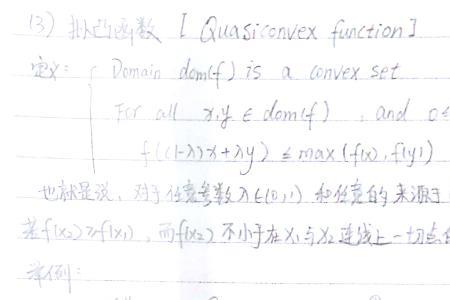 (3) 拟凸函数 [ Quasiconvex function ]
定义: Domain dom(f) is a convex set
For all x,y ∈ dom(f) , and 0≤
f((1-λ)x+λy) ≤ max (f(x), f(y))
也就是说、对于任意参数 λ∈(0,1) 和任意的 来源于
若f(x₂)≥f(x₁) , 而f(x₂) 不小于在 x₁与x₂ 连线上一切点
举例: